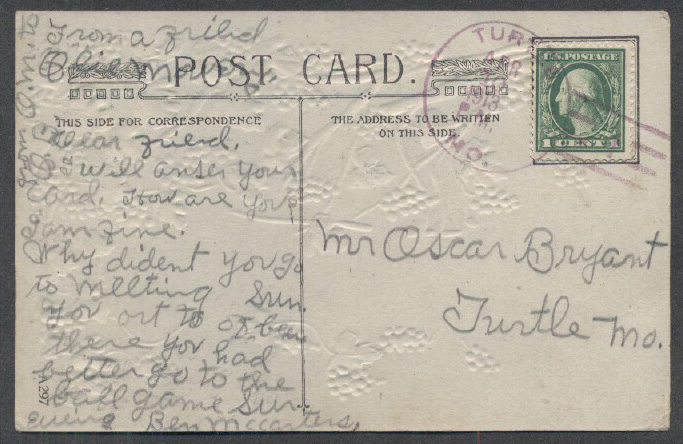 From a friend
POST CARD.
THIS SIDE FOR CORRESPONDENCE
Dear friend.
I will anser your
card. How are you?
I am fine.
Why dident you go
to mellting Sun.
you ort to of ben
there you had
better go to the
ball game Sun.
Ben Mccarters,
from O.M. to
A 297
THE ADDRESS TO BE WRITTEN
ON THIS SIDE
TUR
APR
1913
P.M.
MO.
U.S. POSTAGE
1 CENT 1
Mr Oscar Bryant
Turtle Mo.